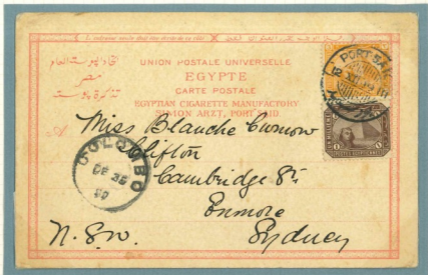 UNION POSTALE UNIVERSELLE
EGYPTE
CARTE POSTALE
EGYPTIAN CIGARETTE MANUFACTORY
SIMON ARZT, PORT-SAID
اتحاد البوستة العام
مصر
تذكرة بوستة
PORT SAID
A
Miss Blanche Curnow
Clifton
Cambridge St.
Enmore
Sydney
N.S.W.
COLOMBO
1
1